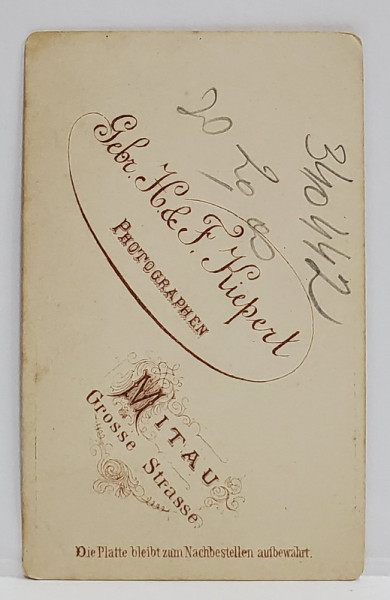 Gebr. H. & F. Kiepert
PHOTOGRAPHEN
MITAU
Grosse Strasse.
Die Platte bleibt zum Nachbestellen aufbewahrt.
340442